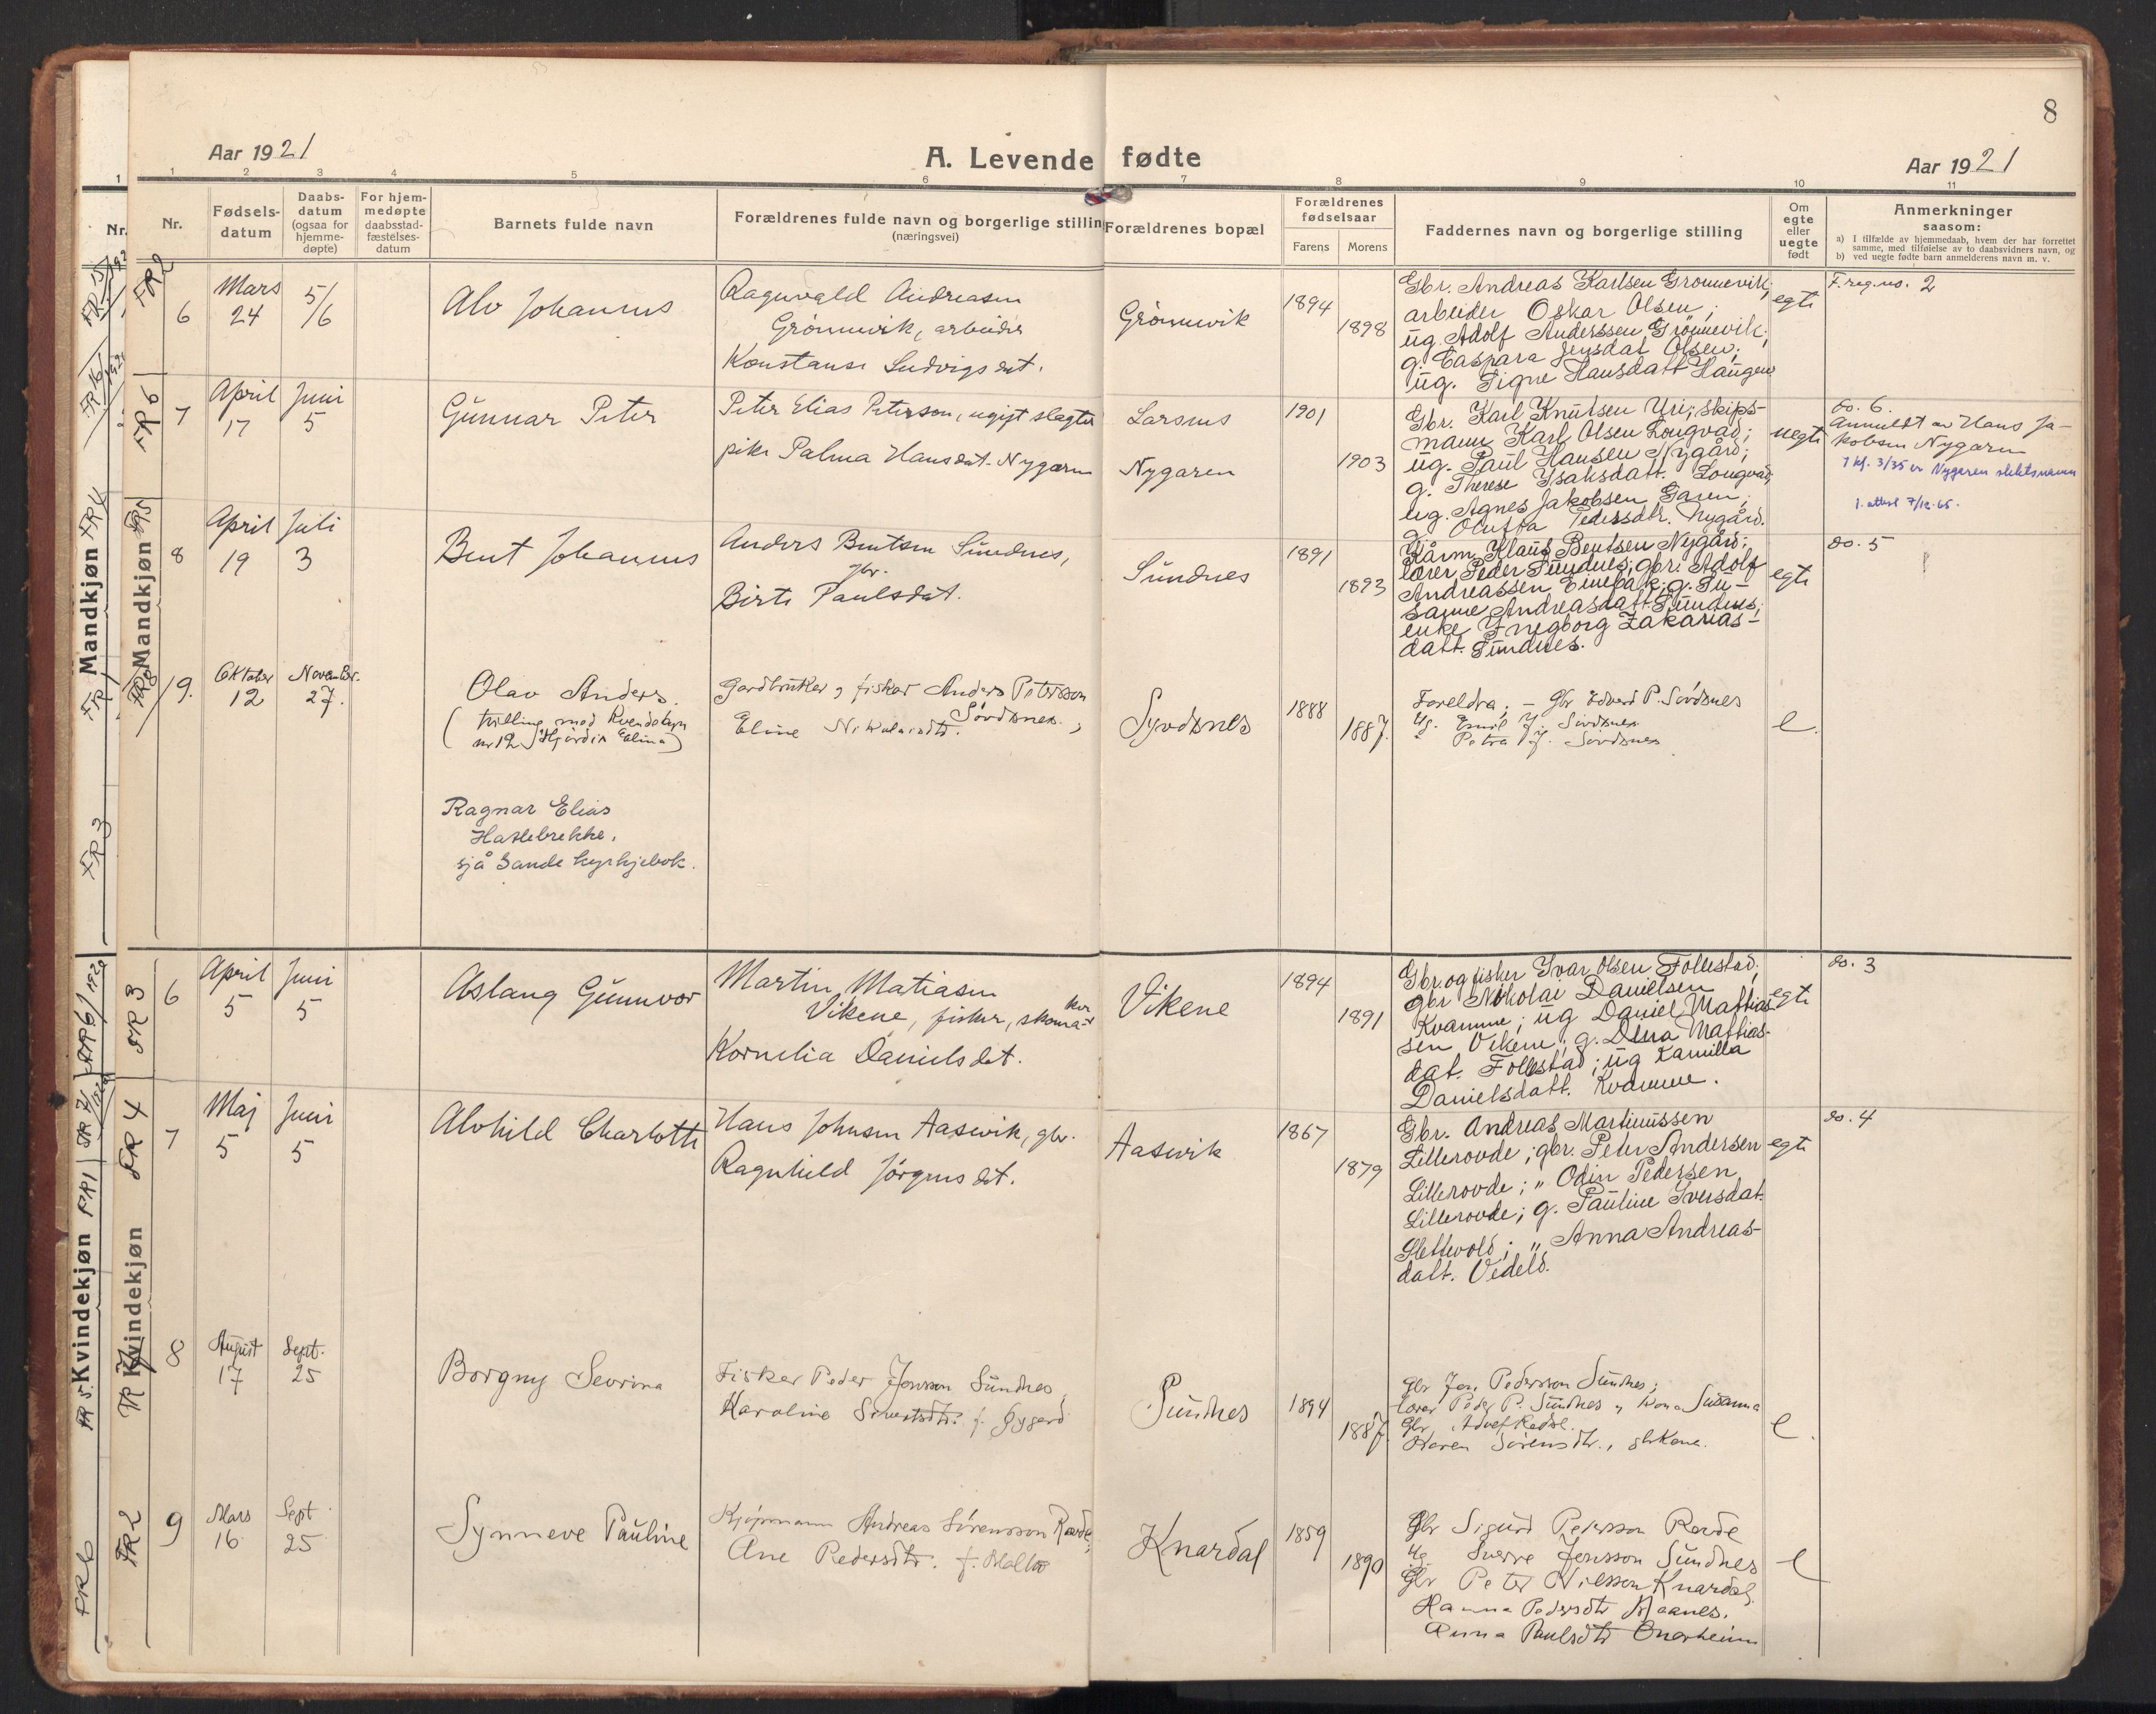 8
Aar 1921
A. Levende fødte
Aar 1921
1 2 3 4 5 6 7 8 9 10 11
Nr.
Fødsels-
datum
Daabs-
datum
(ogsaa for
hjemme-
døpte)
For hjem-
medøpte
daabsstad-
fæstelses-
datum
Barnets fulde navn
Forældrenes fulde navn og borgerlige stilling
(næringsvei)
Forældrenes bopæl
Forældrenes
fødselsaar
Farens Morens
Faddernes navn og borgerlige stilling
Om
egte
eller
uegte
født
Anmerkninger
saasom:
a) I tilfælde av hjemmedaab, hvem der har forrettet
samme, med tilføielse av to daabsvidners navn, og
b) ved uegte fødte barn anmelderens navn m. v.
Mandkjøn
FR2
6
Mars
24
5/6
Alv Johannes
Ragnvald Andreasen
Grønnevik, arbeider
Konstanse Ludvigsdat.
Grønnevik
1894
1898
Gbr. Andreas Karlsen Grønnevik;
arbeider Oskar Olsen;
ug. Adolf Anderssen Grønnevik;
g. Caspara Jensdat Olsen;
ug. Signe Hansdatt Haugen
egte
F.reg.no. 2
FR6
7
April
17
Juni
5
Gunnar Peter
Peter Elias Peterson, ugigt slagter
pike Palma Hansdat. Nygaren
Larsnes
Nygaren
1901
1903
Gbr. Karl Knutsen Uri; skips-
mann Karl Olsen Longvad;
ug. Paul Hansen Nygård;
g. Therese Ysaksdatt. Longvad;
ug. Agnes Jakobsen Garen;
g. Oluffa Pedersdtr. Nygård.
uegte
do. 6.
Anmeldt av Hans Ja-
kobsen Nygaren
I kf. 3/35 er Nygaren slektsnavn
1. attest 7/12-65.
FR5
8
April
19
Juli
3
Bent Johannes
Anders Bentsen Sundnes,
gbr.
Birte Paulsdat.
Sundnes
1891
1893
Kårm. Klaus Bentsen Nygård;
lærer Peder Sundnes; gbr. Adolf
Andreassen Einebak; g. Su-
sanne Andreasdatt Sundnes;
enke Ynegborg Zakarias-
datt. Sundnes.
egte
do. 5
9.
Oktober
12
November.
27.
Olav Anders.
(tvilling med Kvendekyn
nr 12 Hjørdis Eelina)
Gardbruker og fisker Anders Petersson
Sørdsnes.
Eline Nikolaisdtr.
Syvdsnes
1888
1887.
Foreldra; – Gbr Edvard P. Sørdsnes
Ug. Emil J. Sørdsnes
Petra J. Sørdsnes
e.
Ragnar Elias
Haslebrekke,
sjå Sande kyrkjebok.
Kvindekjøn
FR 3
6
April
5
Juni
5
Aslaug Gunnvor
Martin Matiasen
Vikene, fisker, skoma-
ker
Kornelia Danielsdat.
Vikene
1894
1891
Gbr. og fisker Ivar Olsen Follestad;
gbr Nikolai Danielsen
Kvamme; ug Daniel Mattias-
sen Vikene; g. Dina Mattias-
dat. Follestad; ug Kamilla
Danielsdatt. Kvamme.
egte
do. 3
FR 4
7
Maj
5
Juni
5
Alvhild Charlotte
Hans Johnsen Aasevik, gbr.
Ragnhild Jørgensdat.
Aasevik
1867
1879
Gbr. Andreas Martinussen
Lillerovde; gbr. Peter Andersen
Lillerovde; " Odin Pedersen
Lillerovde; g. Pauline Iversdat.
Slettevold; " Anna Andreas-
datt. Vedeld.
egte
do. 4
8
August
17
Sept.
25
Borgny Sevrina
Fisker Peder Jonsson Sundnes,
Karoline Sivertsdtr. f.
Sundnes
1894
1887.
Gbr Jon Pedersson Sundnes;
Lærer Peder P. Sundnes og kona Susanna
Gbr Adolf
Karen Sørensdtr., gbrkone.
e.
FR2
9
Mars
16
Sept
25
Synneve Pauline
Kjøpmann Andreas Sørensson Rovde;
Ane Pedersdtr. f.
Knardal
1859
1890
Gbr Sigurd Pedersson Rovde
Ug. Sverre Jonsson Sundnes
Gbr Peter Nilsson Knardal
Hanna Pedersdtr
Anna Paulsdtr Onarheim
e